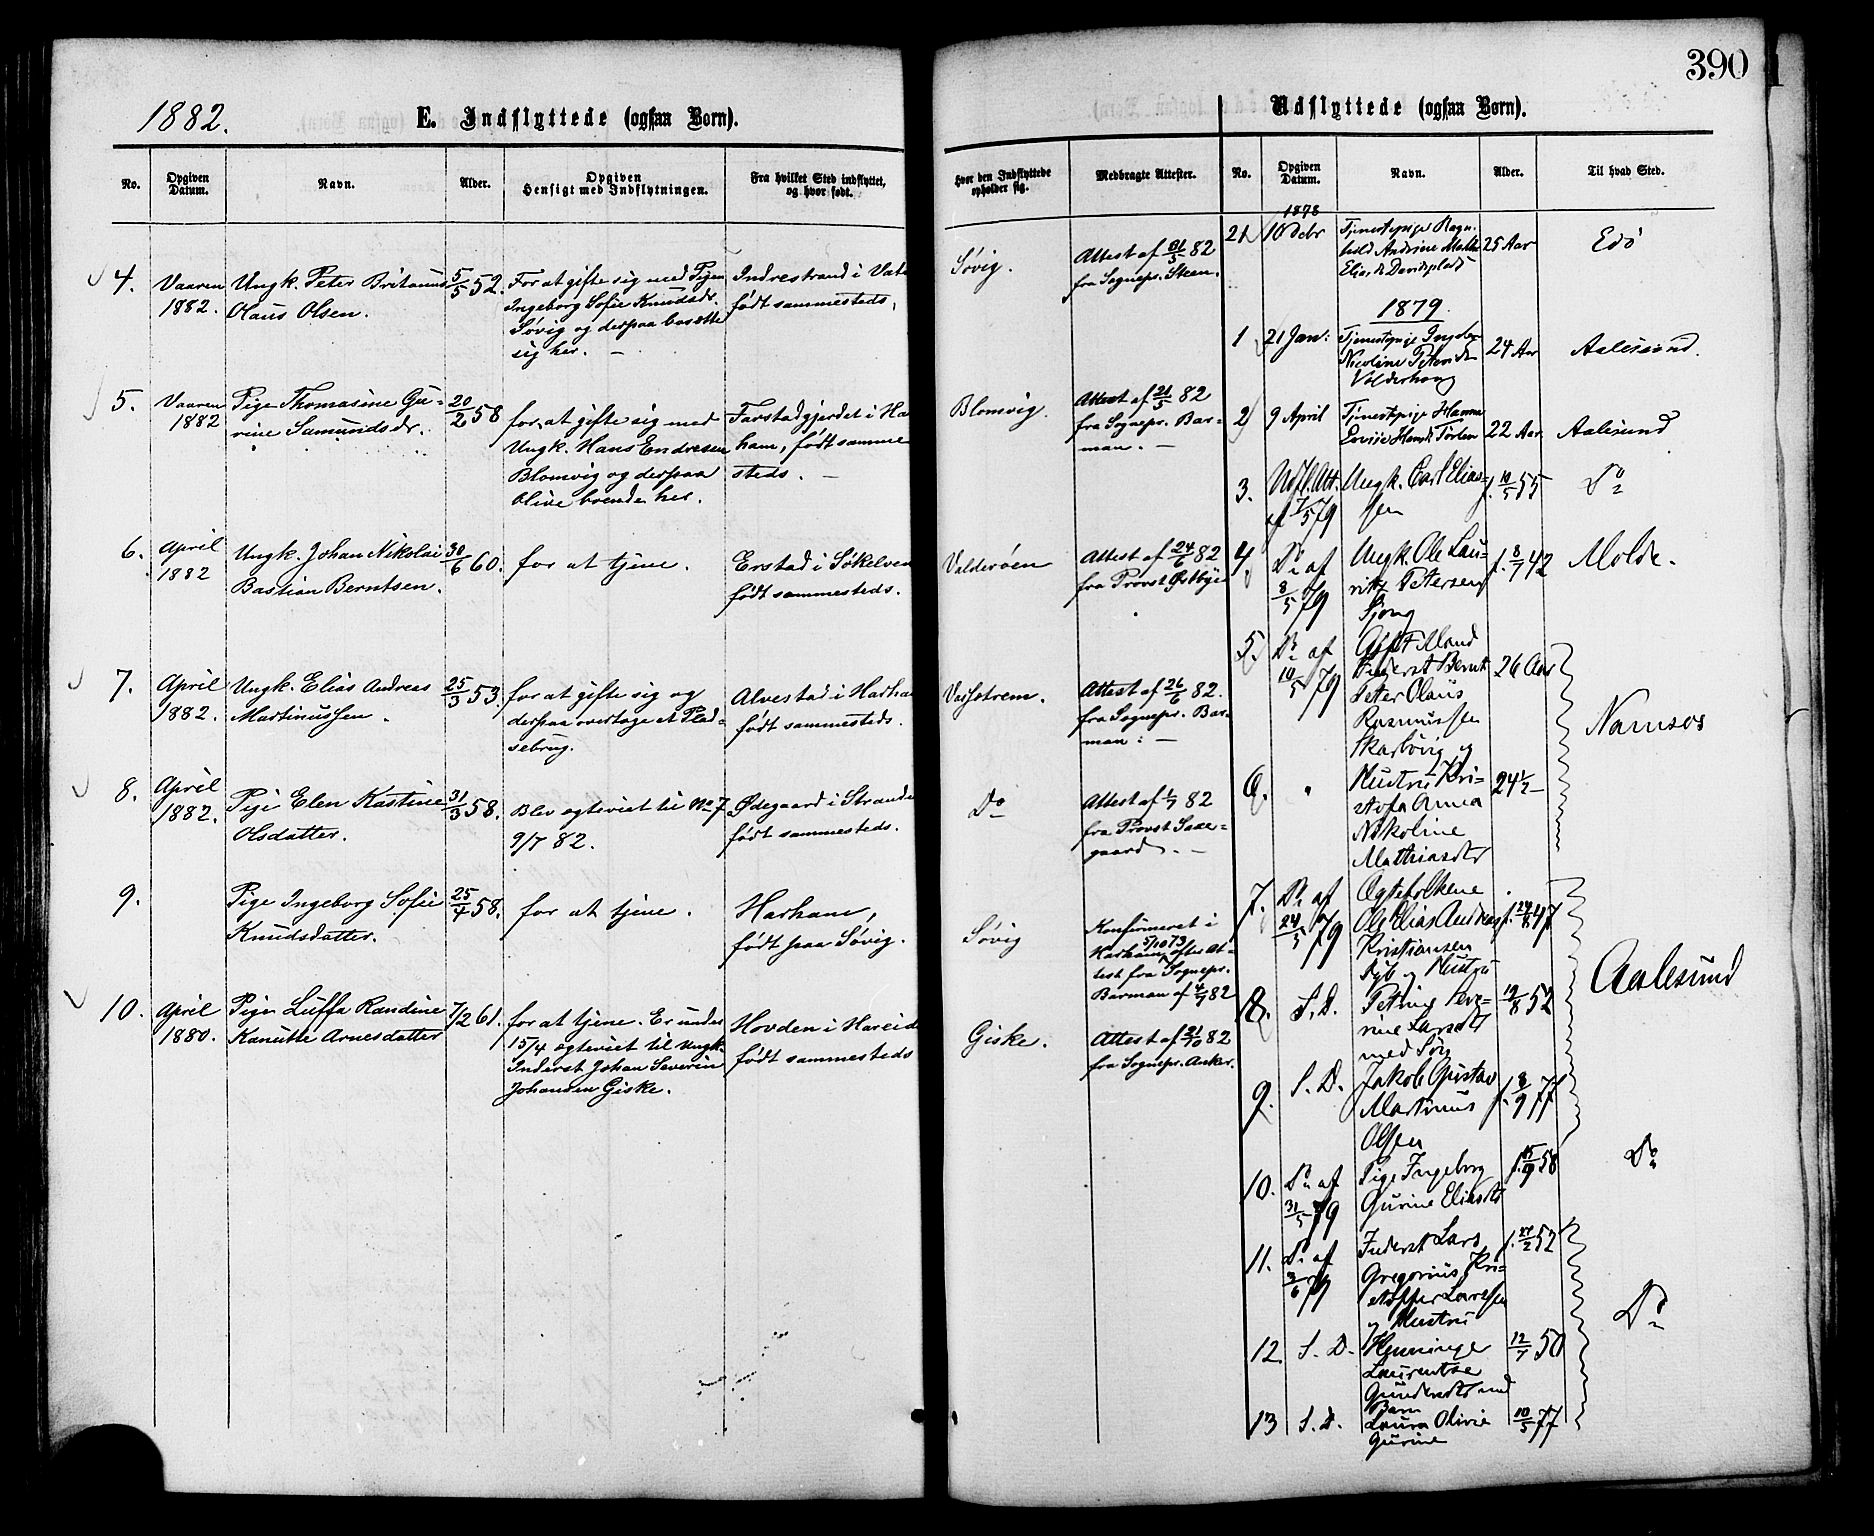 390
1882.
E. Indflyttede (ogsaa Børn).
No.
Opgiven Datum.
Navn.
Alder.
Opgiven Hensigt med Indflytningen.
Fra hvilket Sted indflyttet, og hvor født.
Hvor den Indflyttede opholder sig.
Medbragte Attester.
4.
Vaaren
1882.
Ungk. Peter Britanus
Olaus Olsen.
5/5 52.
For at gifte sig med Pigen
Ingeborg Sofie Knudsdr.
Søvig og derpaa bosætte
sig her. —
Indrestrand i Vat
født sammesteds,
Søvig.
Attest af 31/5 82
fra Sognepr. Steen.
5.
Vaaren
1882
Pige Thomasine Gu-
rine Samundsdr.
20/2 58
for at gifte sig med
Ungk. Hans Endresen
Blomvig og derpaa
blive boende her.
Farstadgjerdet i Ha
ham, født samme
steds. —
Blomvig.
Attest af 21/5 82
fra Sognepr. Bar-
man. —
6.
April
1882
Ungk. Johan Nikolai
Bastian Berntsen.
30/6 60.
for at tjene.
Erstad i Søkelven
født sammesteds.
Valderøen
Attest af 24/6 82
fra Provst Østbye
7.
April
1882.
Ungk. Elias Andreas
Martinussen.
25/3 53.
for at gifte sig og
derpaa overtage et Plad-
sebrug.
Alvestad i Harha
født sammesteds.
Valstrem.
Attest af 26/6 82.
fra Sognepr. Bar-
man: —
8.
April
1882.
Pige Elen Kastine
Olsdatter.
31/3 58.
Blev egteviet til No 7
9/7 82.
Ødegaard i Strande
født sammesteds.
Do
Attest af 1/7 82
fra Provst Saxe-
gaard. —
9.
Pige Ingeborg Sofie
Knudsdatter.
25/4 58.
for at tjene.
Harham,
født paa Søvig.
Søvig
Konfirmeret i
Harham 5/10 73 efter At-
test fra Sognepr.
Barman af 4/7 82
10.
April
1880.
Pige Luffa Randine
Kanutte Arnesdatter
7/2 61.
for at tjene. Er under
15/4 egteviet til Ungk.
Inderst Johan Severin
Johansen Giske.
Hovden i Hareid
født sammesteds
Giske.
Attest af 31/10 82
fra Sognepr. Anker.
Udflyttede (ogsaa Børn).
No.
Opgiven Datum.
Navn.
Alder.
Til hvad Sted.
1878
21
10 Debr
Tjenestepige Ragn-
hild Andrine
Eliasdr
25 Aar
Edø
1879.
1
21 Jan:
Tjenestepige
Nicoline
Valderhaug
24 Aar
Aalesund.
2
9 April
Tjenestepige Hanna
22 Aar
Aalesund
3.
Udfl. Att.
af 7/5 79
Ungk. Carl Elias-
sen
f. 10/5 55
Do
4
Do af
8/5 79
Ungk. Ole Lau-
ritz Petersen
Gjong
f. 8/7 42
Molde.
5.
Do af
10/5 79
Inderst Bernt
Peter Olaus
Rasmussen
Skarbøvig og
26 Aar
Namsos
6.
"
Hustru Kri-
stofa Anna
Nikoline
Mathiasdtr
24 1/2
7.
Do af
24/5 79
Ægtefolkene
Ole Elias Andreas
Kristiansen
Dyb og Hustru
f. 24/8 47
Aalesund
8.
S. D.
Petrine Seve-
rine Larsdtr
med Søn
19/8 52
9.
S. D.
Jakob Gustav
Martinus
Olsen
f. 8/9 77
10.
Do af
31/5 79
Pige Ingeborg
Gurine Eliasdtr
f. 15/9 58
Do
11.
Do af
3/6 79
Inderst Lars
Gregorius Kri-
stoffer Larssen
og Hustru
f. 27/2 52
Do
12.
S. D.
Henninge
Laurentse
Gundersdtr med
Barn
12/7 50
13
S. D.
Laura Olivie
Gurine
10/5 77